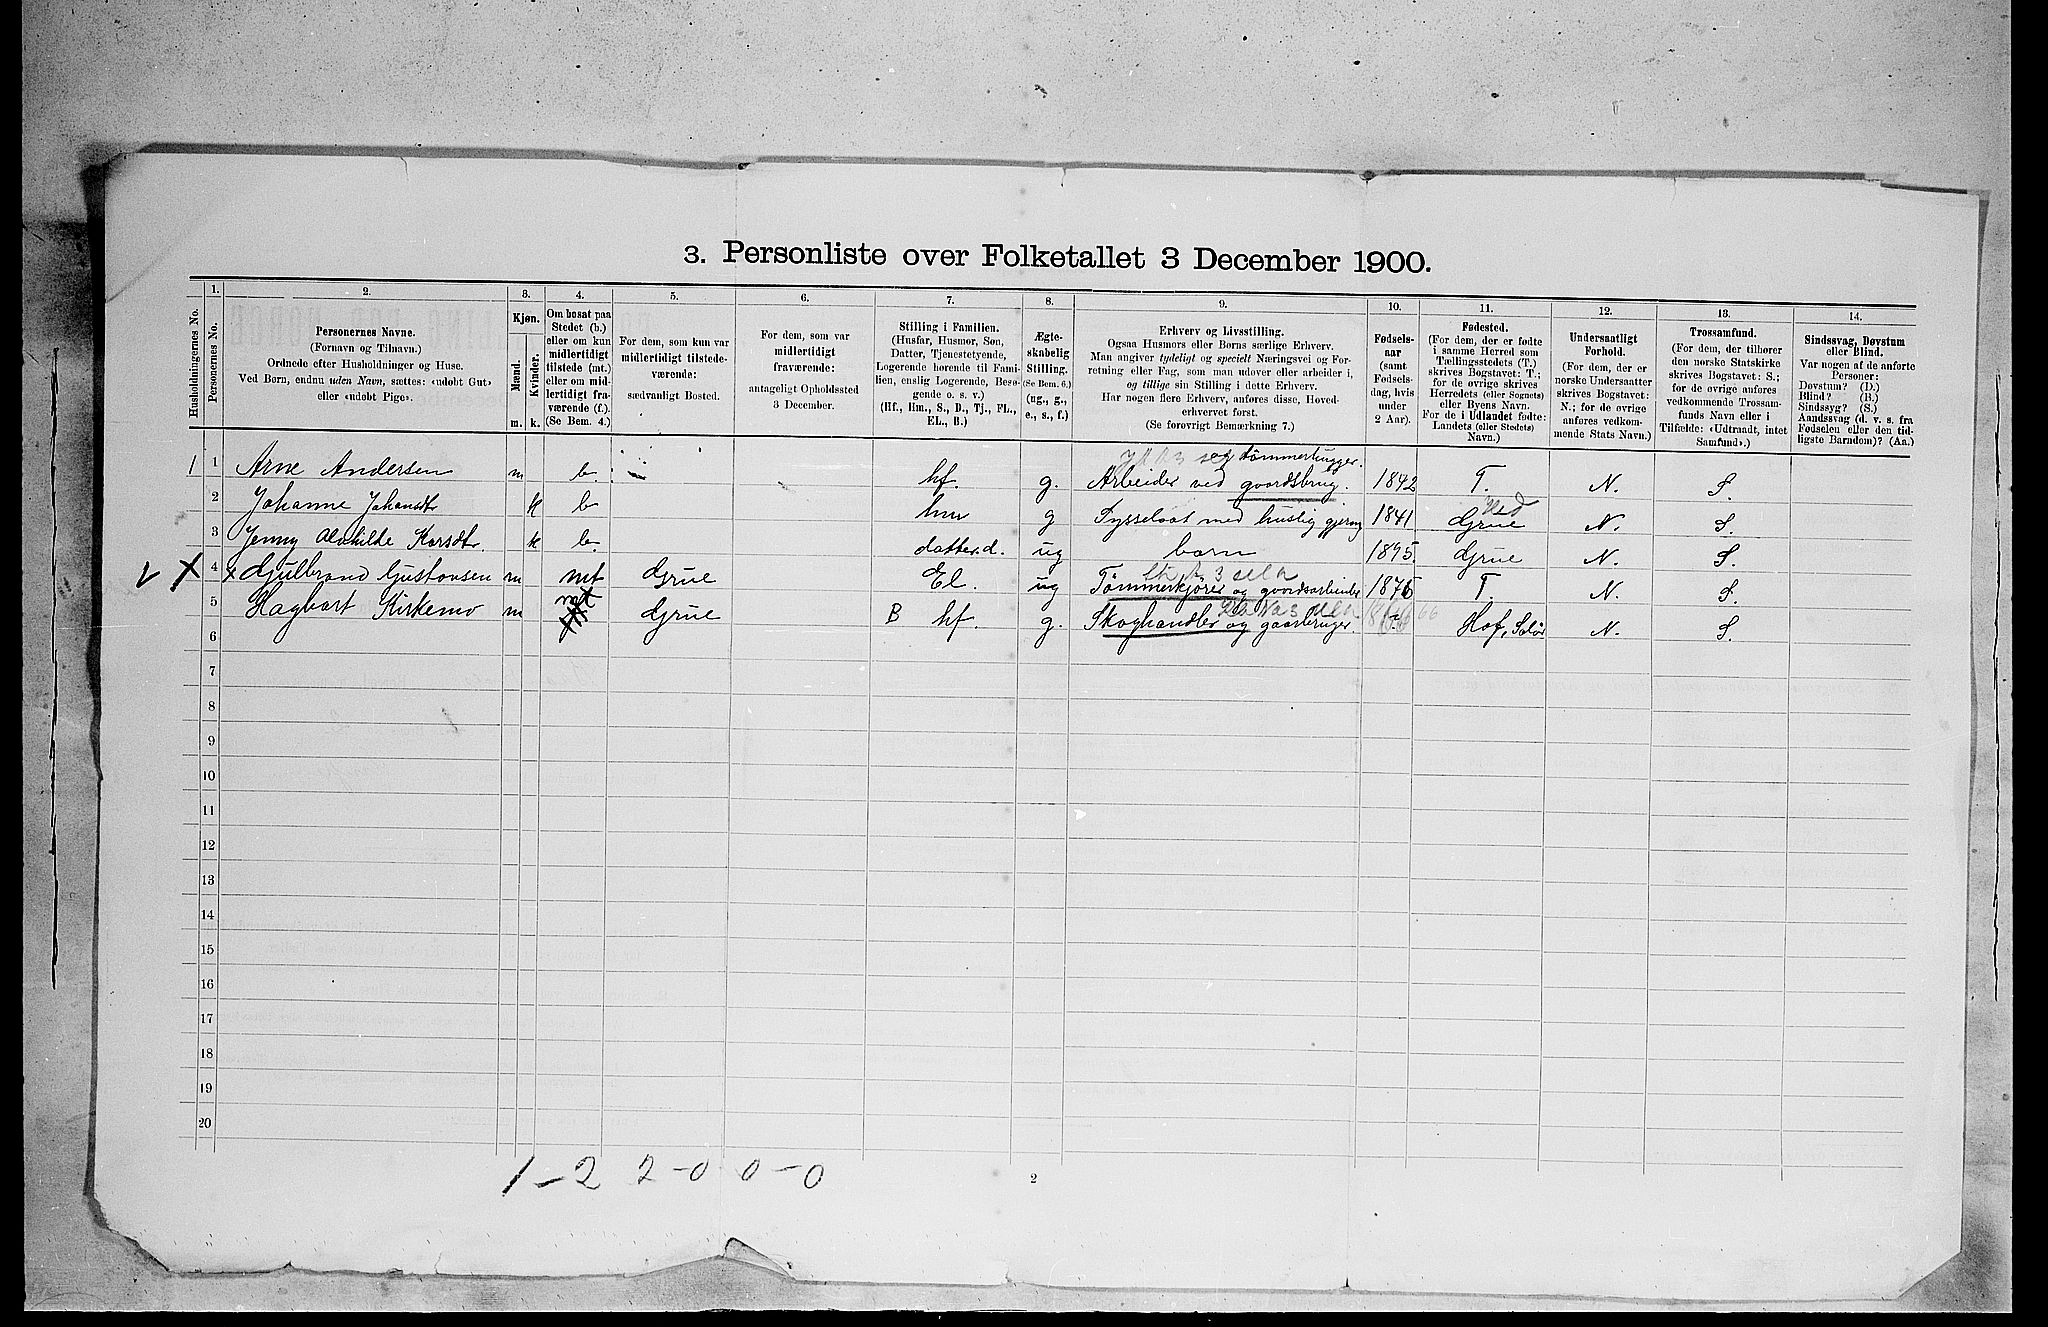 3. Personliste over Folketallet 3 December 1900.
1. 2. 3. 4. 5. 6. 7. 8. 9. 10. 11. 12. 13. 14.
Husholdningernes No.
Personernes No.
Personernes Navne.
(Fornavn og Tilnavn.)
Ordnede efter Husholdninger og Huse.
Ved Børn, endnu uden Navn, sættes: «udøbt Gut»
eller «udøbt Pige».
Kjøn.
Mænd.
Kvinder.
m. k.
Om bosat paa
Stedet (b.)
eller om kun
midlertidigt
tilstede (mt.)
eller om mid-
lertidigt fra-
værende (f.).
(Se Bem. 4.)
For dem, som kun var
midlertidigt tilstede-
værende:
sædvanligt Bosted.
For dem, som var
midlertidigt
fraværende:
antageligt Opholdssted
3 December.
Stilling i Familien.
(Husfar, Husmor, Søn,
Datter, Tjenestetyende,
Logerende hørende til Fami-
lien, enslig Logerende, Besø-
gende o. s. v.)
(Hf., Hm., S., D., Tj., FL.,
EL., B.)
Ægte-
skabelig
Stilling.
(Se Bem. 6.)
(ug., g.,
e., s., f.)
Erhverv og Livsstilling.
Ogsaa Husmors eller Børns særlige Erhverv.
Man angiver tydeligt og specielt Næringsvei og For-
retning eller Fag, som man udøver eller arbeider i,
og tillige sin Stilling i dette Erhverv.
Har nogen flere Erhverv, anføres disse, Hoved-
erhvervet først.
(Se forøvrigt Bemærkning 7.)
Fødsels-
aar
(samt
Fødsels-
dag, hvis
under
2 Aar).
Fødested.
(For dem, der er fødte
i samme Herred som
Tællingsstedets (T.)
skrives Bogstavet: T.;
for de øvrige skrives
Herredets (eller Sognets)
eller Byens Navn.
For de i Udlandet fødte:
Landets (eller Stedets)
Navn.)
Undersaatligt
Forhold.
(For dem, der er
norske Undersaatter
skrives Bogstavet:
N.; for de øvrige
anføres vedkom-
mende Stats Navn.)
Trossamfund.
(For dem, der tilhører
den norske Statskirke
skrives Bogstavet: S.;
for de øvrige anføres
vedkommende Trossam-
funds Navn eller i
Tilfælde: «Udtraadt, intet
Samfund».)
Sindssvag, Døvstum
eller Blind.
Var nogen af de anførte
Personer:
Døvstum? (D.)
Blind? (B.)
Sindssyg? (S.)
Aandssvag (d. v. s. fra
Fødselen eller den tid-
ligste Barndom)? (Aa.)
og tømmerhugger.
1 1 Arne Andersen m b. hf. g. Arbeider ved gaardsbrug. 1842 T. N. S.
2 Johanne Johansdtr k b hm g Sysselsat med huslig gjerning 1841 Grue N. S.
3 Jenny Alvhilde Karsdtr. k b. datter. d. ug barn 1895. Grue N. S.
X 4 x Gulbrand Gustavsen m mt Grue El. ug Tømmerkjører og gaardsarbeider 1876 T. N. S.
5 Hagbart Kirkemo m mt Grue B hf. g. Skoghandler og gaardbruger. 66 Hof, Solør N. S.
6
7
8
9
10
11
12
13
14
15
16
17
18
19
20
1-2 2-0 0-0
2